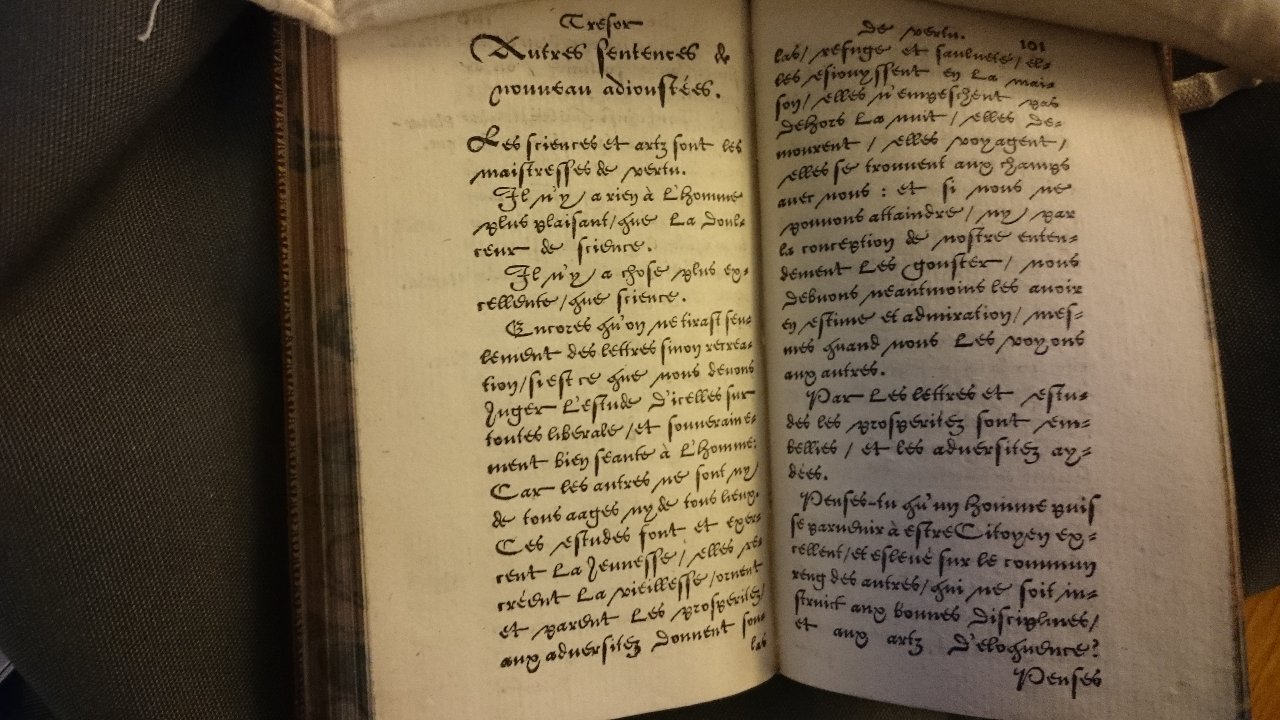 Tresor
Autres sentences de
nouveau adioustées.
Les sciences et artz sont les
maistresses de vertu.
Il n'y a rien à L'homme
plus plaisant/que La doul-
ceur de science.
Il n'y a chose plus ex-
cellente/que science.
Encores qu'on ne tirast seu-
lement des lettres sinon recrea-
tion/si est ce que nous deuons
Iuger L'estude d'icelles sur
toutes liberale/et souueraine-
ment bien seante à L'homme:
Car les autres ne sont ny
de tous aages ny de tous lieux.
Ces estudes sont et exer-
cent La Ieunesse/elles re-
créent La vieillesse/ornent
et parent Les prosperitez/
aux adversitez donnent sou-
las
de vertu.
101
las/refuge et sauluete/el-
les esiouyssent en La mai-
son/elles n'empeschent pas
dehors La nuit/elles de-
mourent/elles voyagent/
elles se trouuent aux champs
avec nous: et si nous ne
pouuons attaindre/ny par
la conception de nostre enten-
dement Les gouster/nous
debuons neantmoins les auoir
en estime et admiration/mes-
mes quand nous Les voyons
aux autres.
Par Les lettres et estu-
des les prosperitez sont em-
bellies/et les adversitez ay-
dées.
Penses-tu qu'un homme puis
se paruenir à estre Citoyen ex-
cellent/et esleué sur le commun
reng des autres/qui ne soit in-
struict aux bonnes disciplines/
et aux artz d'eloquence?
Penses